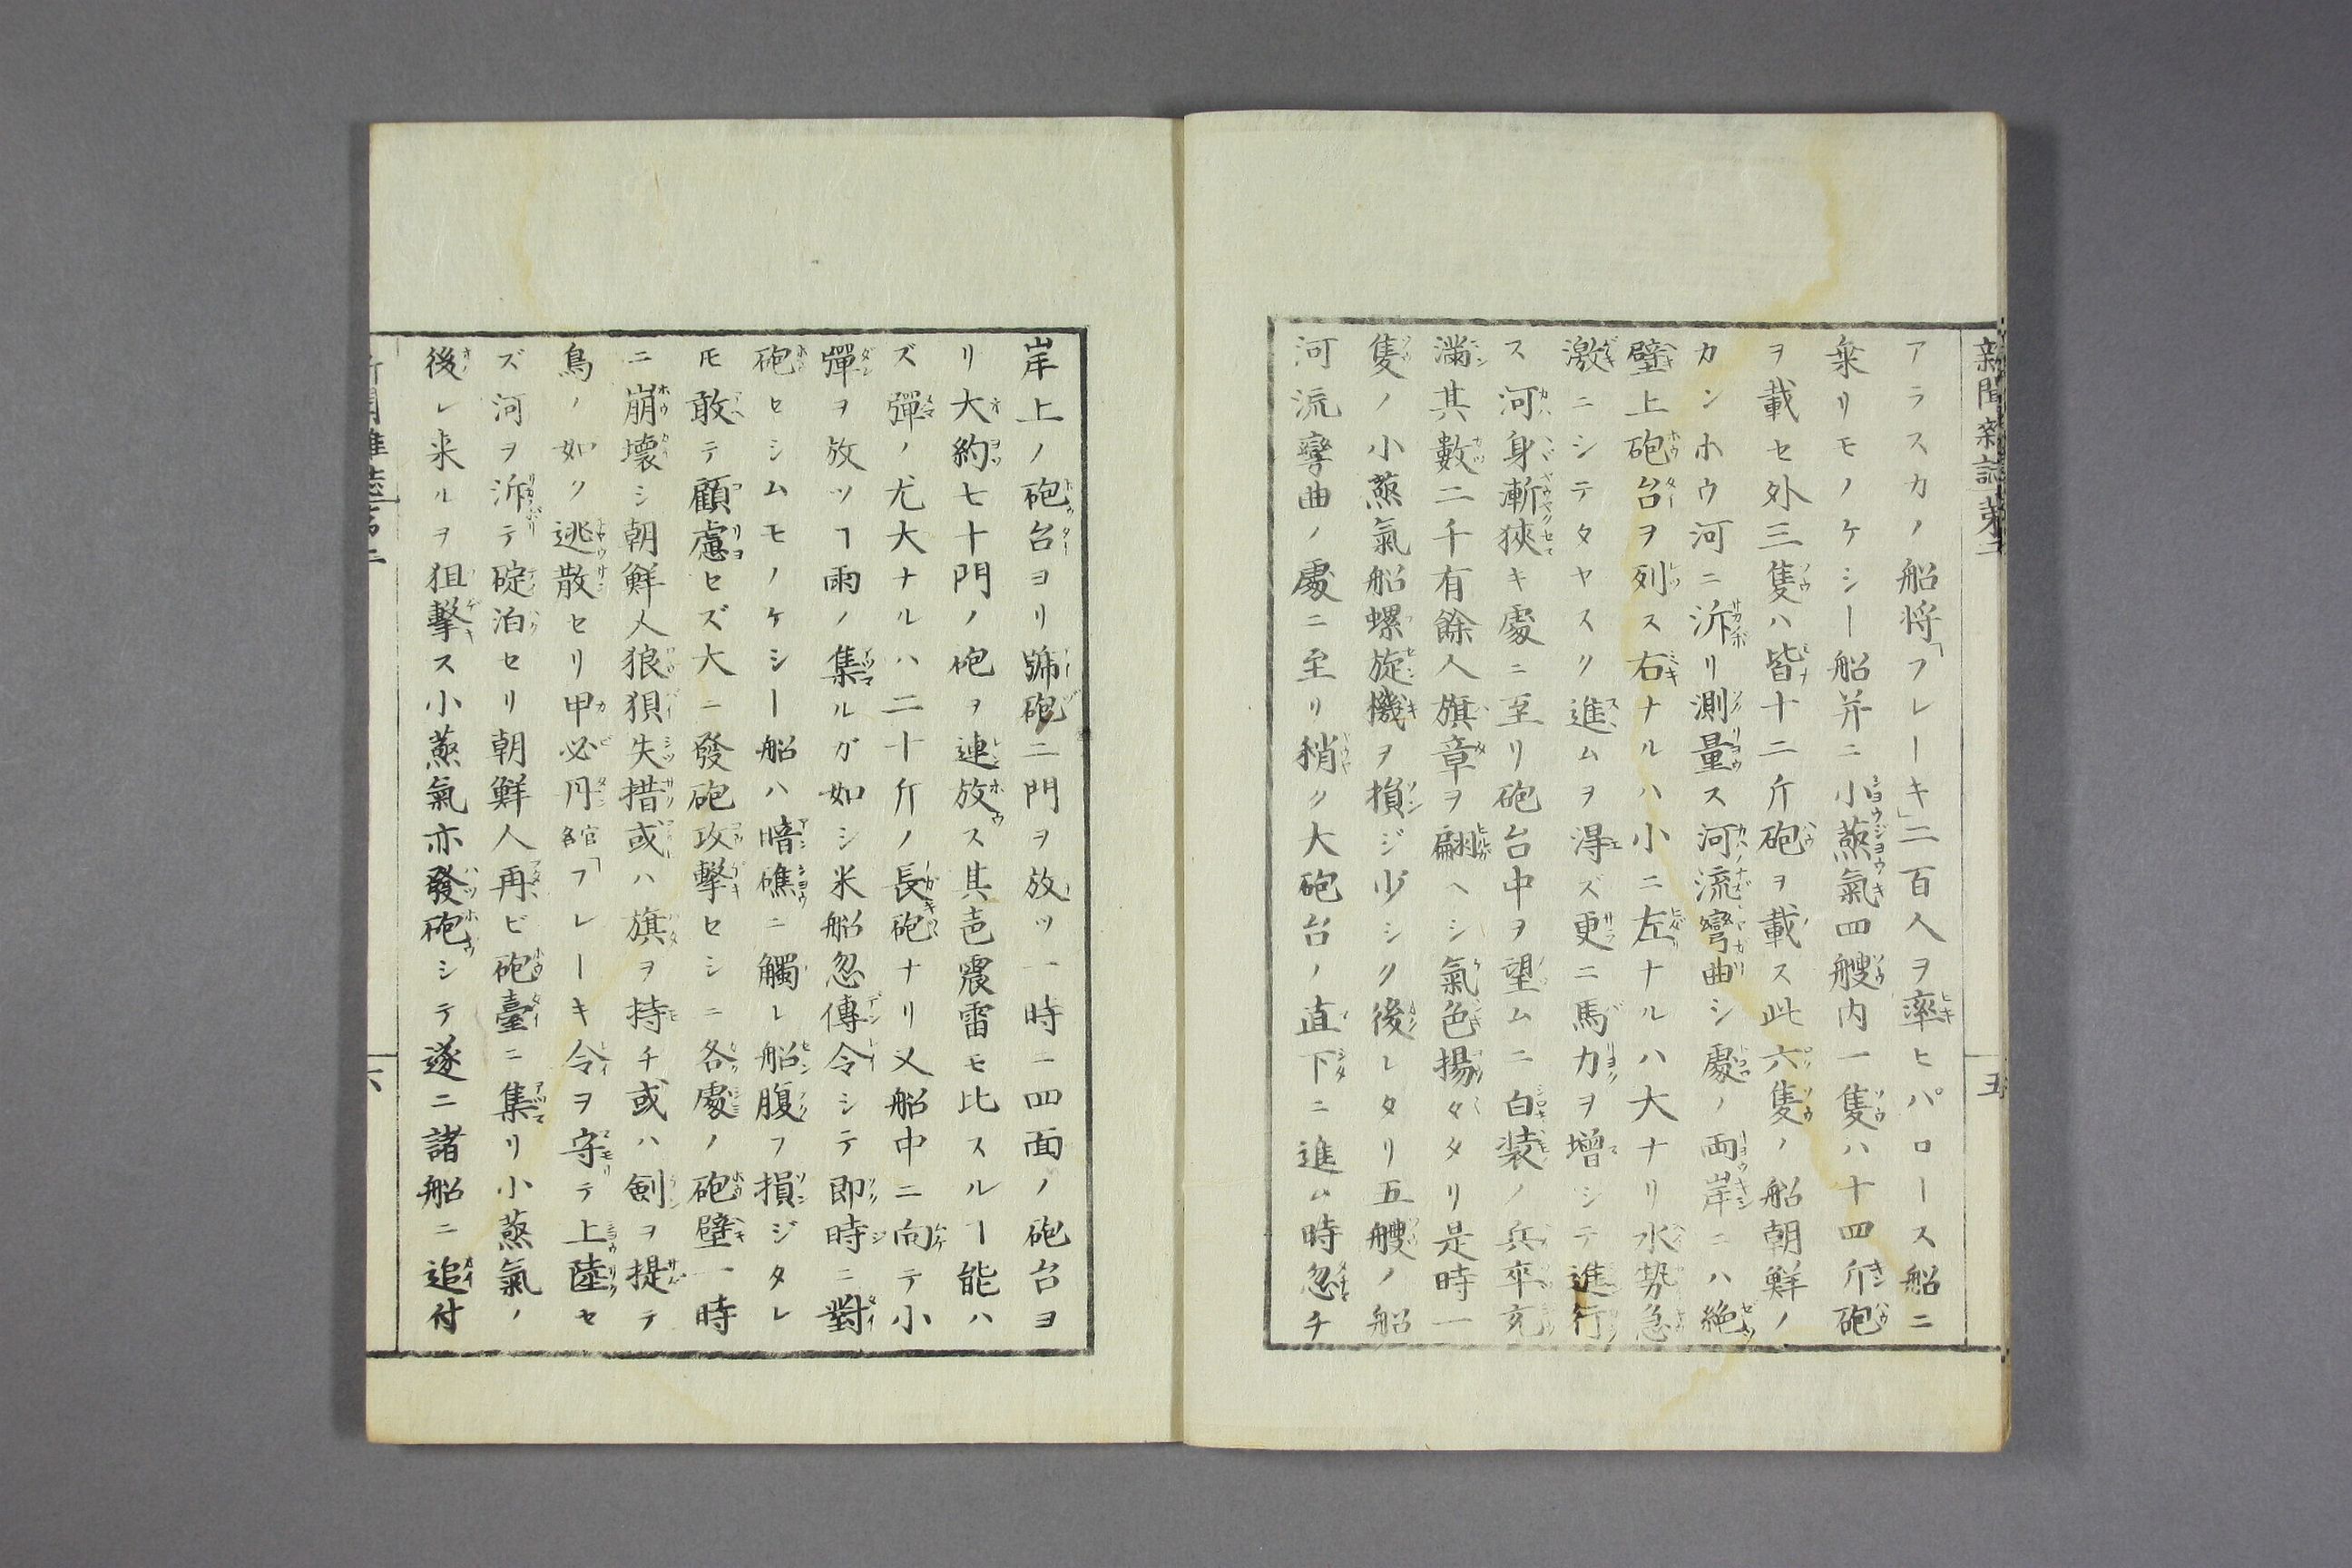 新聞雑誌第二
五
アラスカノ船将「フレーキ」二百人ヲ率ヒパロース船ニ
乗リモノケシー船并ニ小蒸氣四艘内一隻ハ十四斤砲
ヲ載セ外三隻ハ皆十二斤砲ヲ載ス此六隻ノ船朝鮮ノ
カンホウ河ニ泝リ測量ス河流彎曲シ處ノ両岸ニハ絶
壁上砲台ヲ列ス右ナルハ小ニ左ナルハ大ナリ水勢急
激ニシテタヤスク進ムヲ得ズ更ニ馬力ヲ増シテ進行
ス河身漸狹キ處ニ至リ砲台中ヲ望ムニ白装ノ兵卒充
滿其數二千有餘人旗章ヲ翩ヘシ氣色揚々タリ是時一
隻ノ小蒸氣船螺旋機ヲ損ジ少シク後レタリ五艘ノ船
河流彎曲ノ處ニ至リ稍ク大砲台ノ直下ニ進ム時忽チ
岸上ノ砲台ヨリ號砲二門ヲ放ツ一時ニ四面ノ砲台ヨ
リ大約七十門ノ砲ヲ連放ス其声震雷モ比スルヿ能ハ
ズ彈ノ尤大ナルハ二十斤ノ長砲ナリ又船中ニ向テ小
彈ヲ放ツヿ雨ノ集ルガ如シ米船忽傳令シテ即時ニ對
砲セシムモノケシー船ハ暗礁ニ觸レ船腹ヲ損ジタレ
𪜈敢テ顧慮セズ大ニ發砲攻擊セシニ各處ノ砲壁一時
ニ崩壊シ朝鮮人狼狽失措或ハ旗ヲ持チ或ハ剣ヲ提テ
鳥ノ如ク逃散セリ甲必丹官名「フレーキ令ヲ守テ上陸セ
ズ河ヲ泝テ碇泊セリ朝鮮人再ビ砲臺ニ集リ小蒸氣ノ
後レ来ルヲ狙擊ス小蒸氣亦發砲シテ遂ニ諸船ニ追付
新聞雑誌第二
六